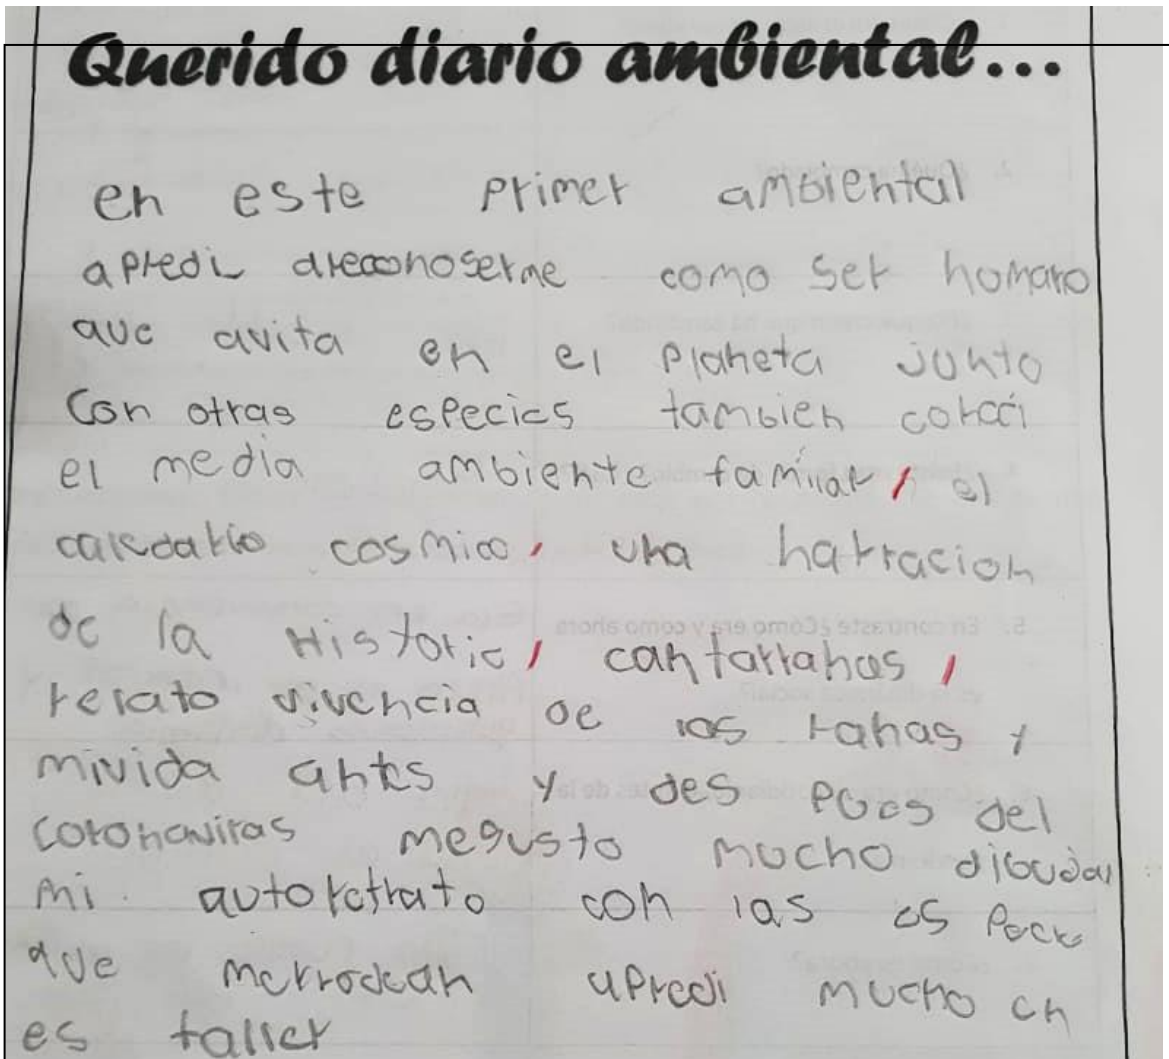 Querido diario ambiental...
en este primer ambiental
apredi areconoserme como ser homano
que avita en el planeta junto
con otras especies tambien conoci
el media ambiente familar, el
calcdario cosmico, una narracion
de la Historic, cantarranas,
relato vivencia de las ranas y
mivida antes y des poes del
coronaviras megusto mocho dibujar
mi autoretrato con las es
que merrodean apredi mucho en
es taller